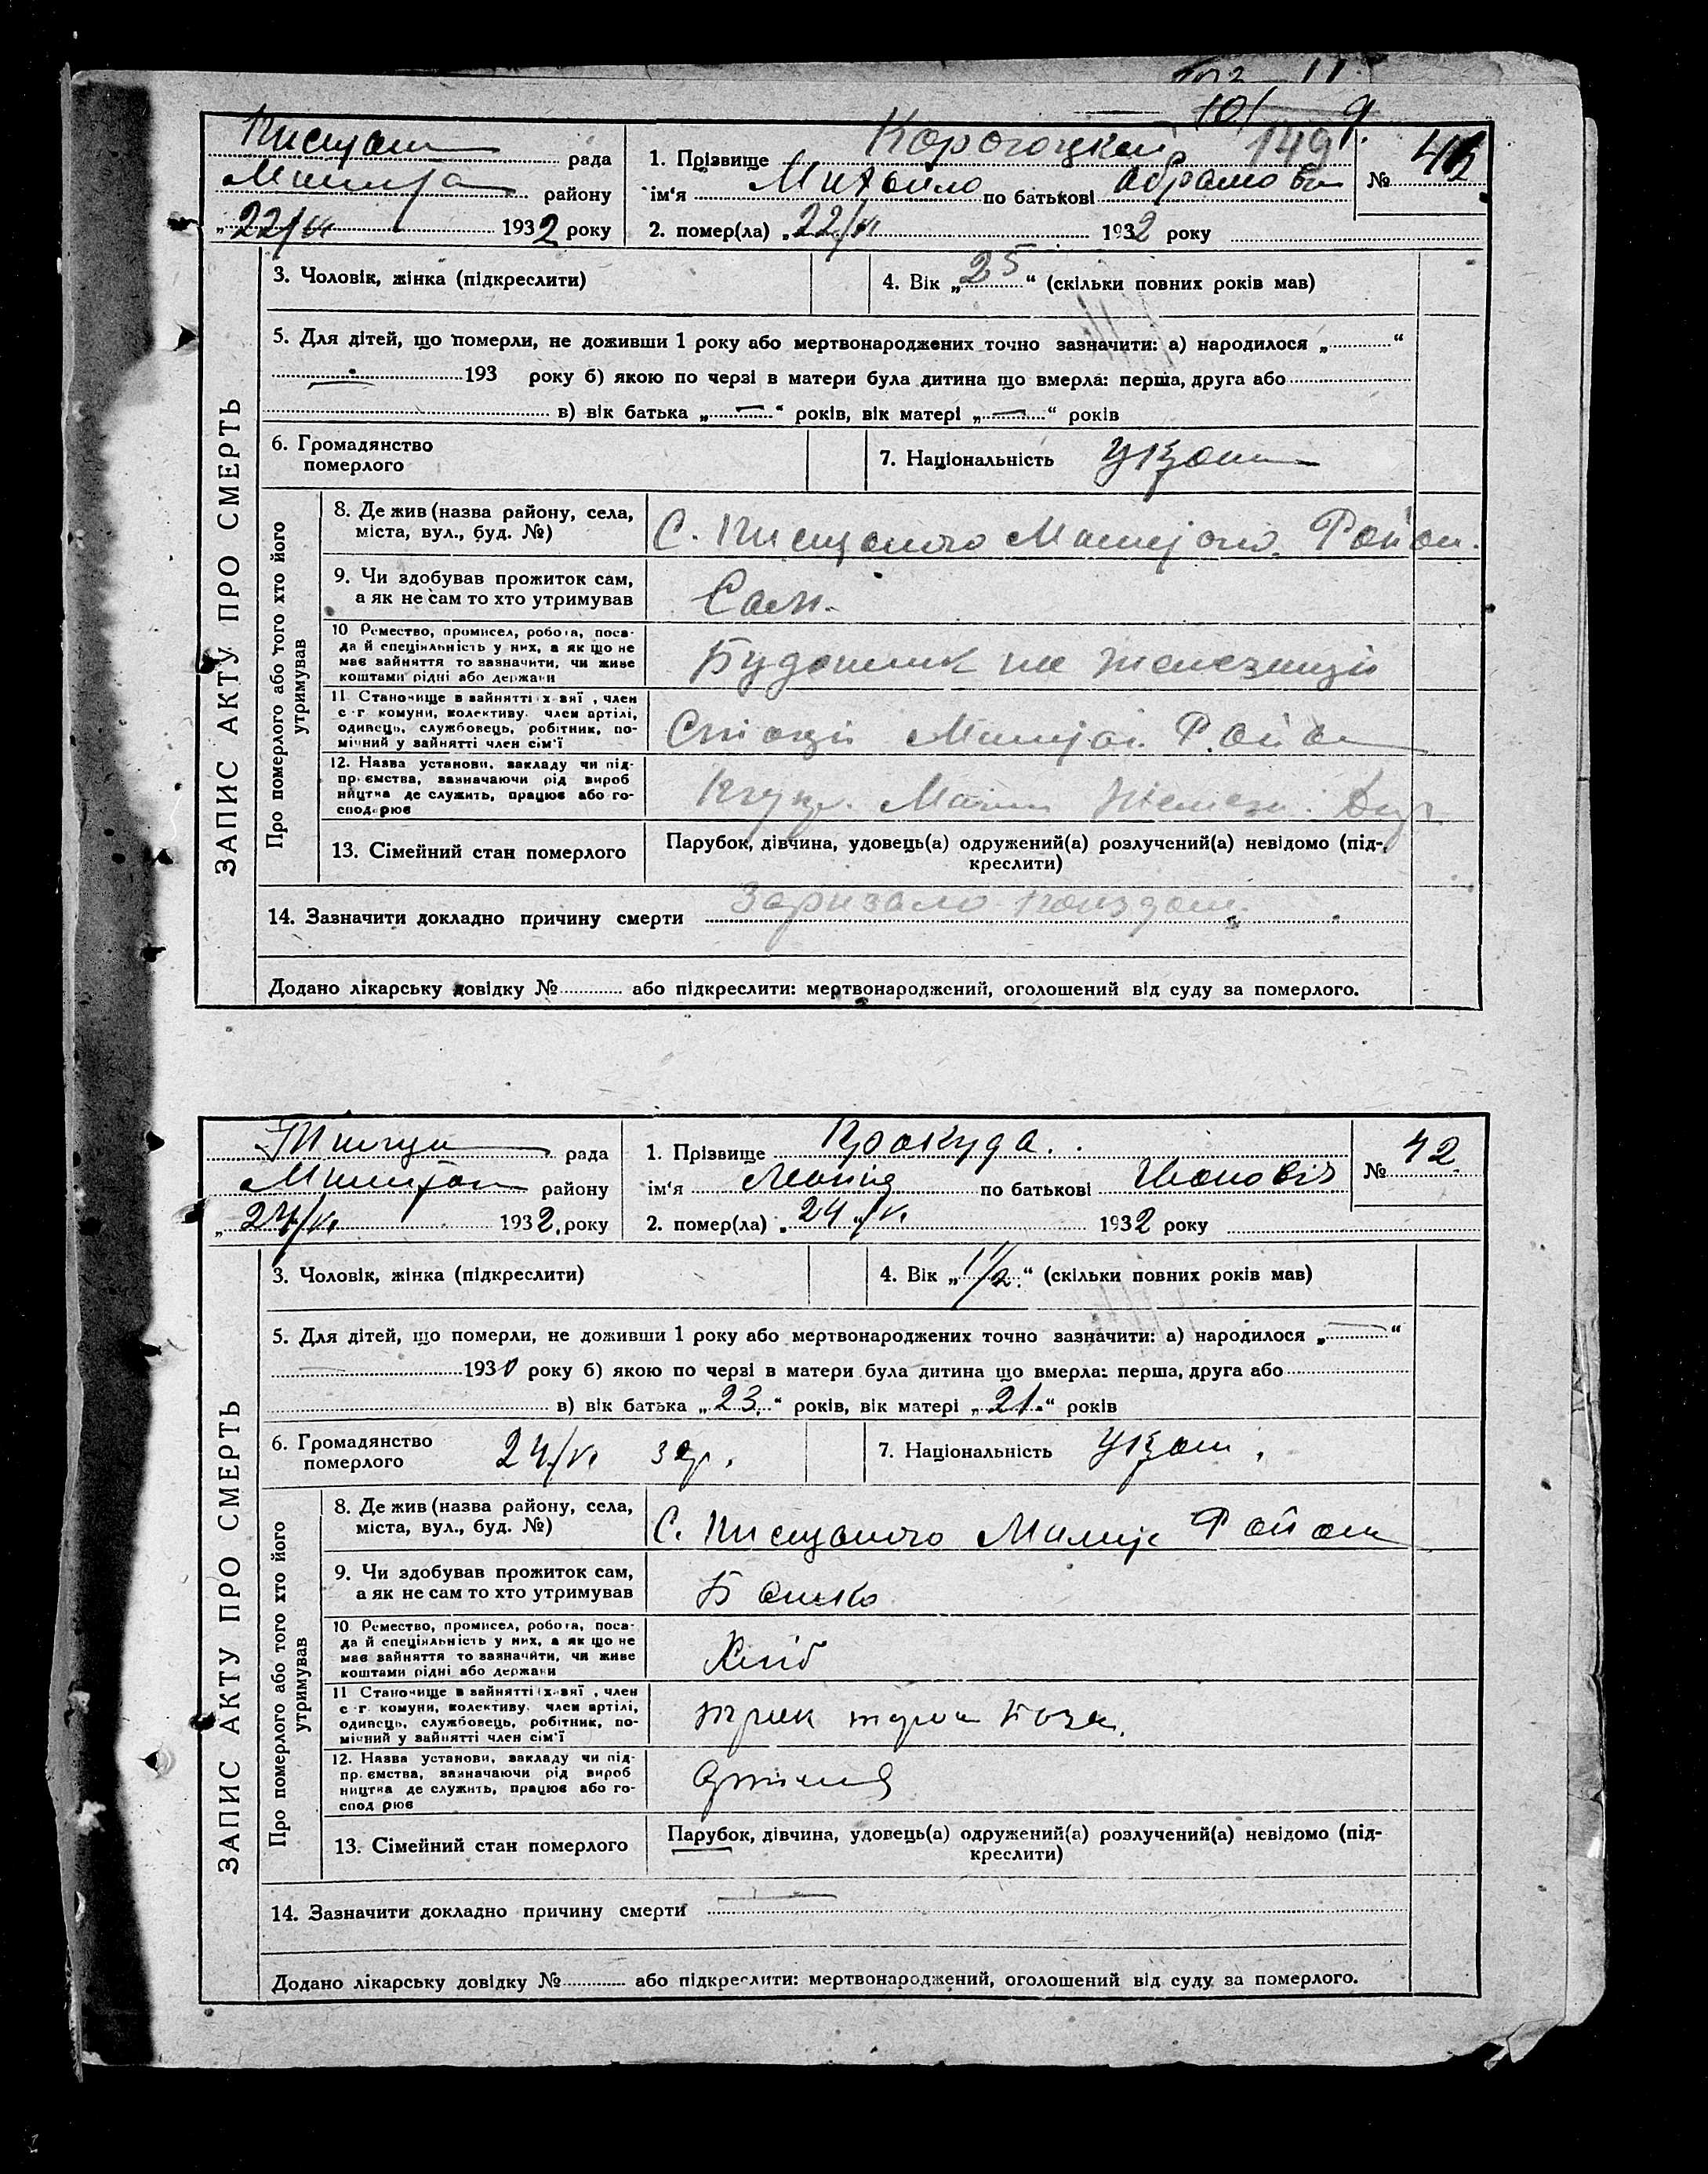 149
рада
1. Прізвище Корогоцкий
№ 41
району
ім'я Михайло по батькові Абрамов
„22/VI 1932 року
2. помер(ла) „22/VI 1932 року
ЗАПИС АКТУ ПРО СМЕРТЬ
3. Чоловік, жінка (підкреслити)
4. Вік „25“ (скільки повних років мав)
5. Для дітей, що померли, не доживши 1 року або мертвонароджених точно зазначити: а) народилося „ “
193 року б) якою по черзі в матери була дитина що вмерла: перша, друга або
в) вік батька „—“ років, вік матері „—“ років
6. Громадянство
померлого
7. Національність
Про померлого або того хто його
утримував
8. Де жив (назва району, села,
міста, вул., буд. №)
С. Пищаного Район.
9. Чи здобував прожиток сам,
а як не сам то хто утримував
Сам.
10 Ремество, промисел, робота, поса-
да й спеціяльність у них, а як що не
має зайняття то зазначити, чи живе
коштами рідні або держави
Будошник на
11 Становище в зайнятті х-вяї, член
с-г комуни, колективу, член артілі,
одинець, службовець, робітник, по-
мічний у зайнятті член сім'ї
Стіації Район
12. Назва установи, закладу чи під-
приємства, зазначаючи рід вироб
ництва де служить, працює або го-
сподарює
13. Сімейний стан померлого
Парубок, дівчина, удовець(а) одружений(а) розлучений(а) невідомо (під-
креслити)
14. Зазначити докладно причину смерти Заризало поиздом.
Додано лікарську довідку № або підкреслити: мертвонароджений, оголошений від суду за померлого.
рада
1. Прізвище Кракуда.
№ 42
району
ім'я по батькові Іванович
„24/VI 1932. року
2. помер(ла) „24/VI 1932 року
ЗАПИС АКТУ ПРО СМЕРТЬ
3. Чоловік, жінка (підкреслити)
4. Вік „1 1/2“ (скільки повних років мав)
5. Для дітей, що померли, не доживши 1 року або мертвонароджених точно зазначити: а) народилося „—“
1930 року б) якою по черзі в матери була дитина що вмерла: перша, друга або
в) вік батька „23.“ років, вік матері „21.“ років
6. Громадянство
померлого
24/VI 32р.
7. Національність
Про померлого або того хто його
утримував
8. Де жив (назва району, села,
міста, вул., буд. №)
С. Пищаного Район
9. Чи здобував прожиток сам,
а як не сам то хто утримував
Батько
10 Ремество, промисел, робота, поса-
да й спеціяльність у них, а як що не
має зайняття то зазначити, чи живе
коштами рідні або держави
Хліб
11 Становище в зайнятті х-вяї, член
с-г комуни, колективу, член артілі,
одинець, службовець, робітник, по-
мічний у зайнятті член сім'ї
12. Назва установи, закладу чи під-
приємства, зазначаючи рід вироб
ництва де служить, працює або го-
сподарює
13. Сімейний стан померлого
Парубок, дівчина, удовець(а) одружений(а) розлучений(а) невідомо (під-
креслити)
14. Зазначити докладно причину смерти —
Додано лікарську довідку № або підкреслити: мертвонароджений, оголошений від суду за померлого.